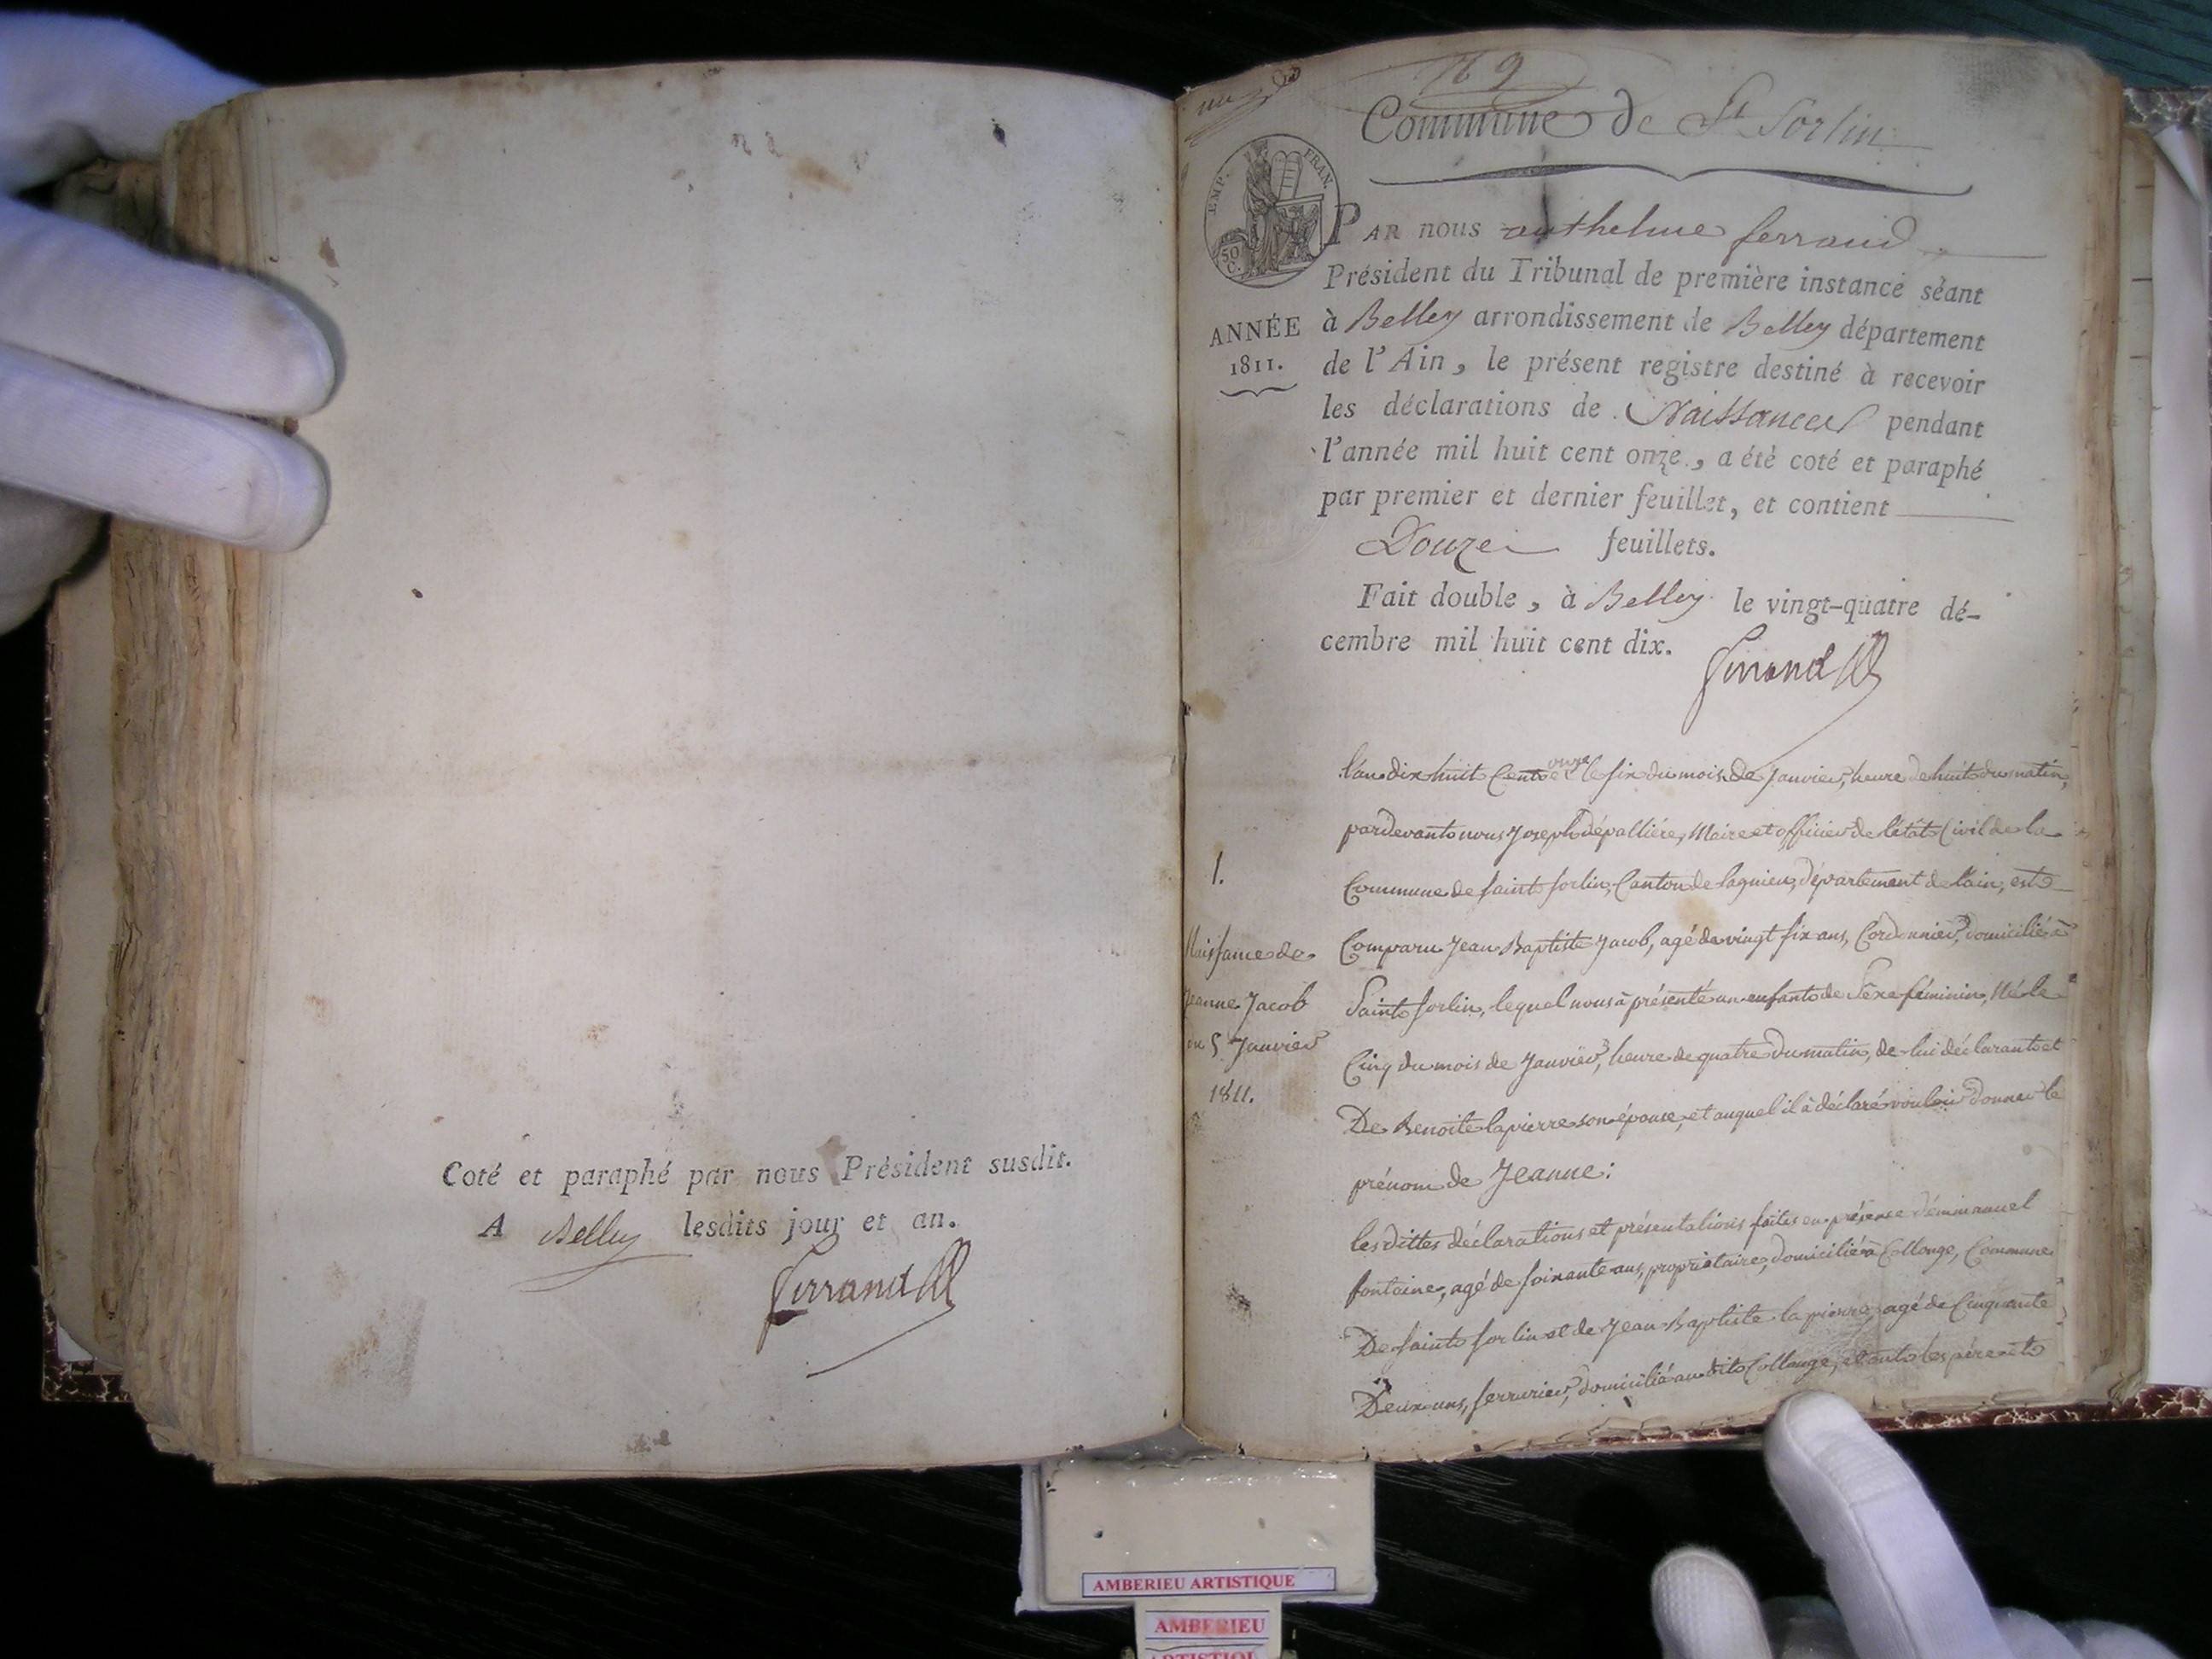 Coté et paraphé par nous Président susdit.
A Belley lesdits jour et an.
Ferrand
169
Commune de St Sorlin
EMP. FRAN.
50 C.
PAR nous anthelme ferrand
Président du Tribunal de première instance séant
à Belley arrondissement de Belley département
de l'Ain, le présent registre destiné à recevoir
les déclarations de Naissances pendant
l'année mil huit cent onze, a été coté et paraphé
par premier et dernier feuillet, et contient
Douze feuillets.
Fait double, à Belley le vingt-quatre dé-
cembre mil huit cent dix.
Ferrand
ANNÉE
1811.
1.
Naissance de
Jeanne Jacob
du 5 Janvier
1811.
l'an dix huit Cent onze le six du mois de Janvier, heure de huit du matin,
pardevant nous Joseph dépallière, Maire et officier de l'état Civil de la
Commune de saint sorlin, Canton de lagnieu, département de l'ain, est
Comparu Jean Baptiste Jacob, agé de vingt six ans, Cordonnier, domicilié à
Saint sorlin, lequel nous à présenté un enfant de Sèxe féminin, Né le
Cinq du mois de Janvier, heure de quatre du matin, de lui déclarant et
De Benoite lapierre son épouse, et auquel il à déclaré vouloir donner le
prénom de Jeanne:
les dittes déclarations et présentations faites en présence d'emmanuel
fontaine, agé de soixante ans, propriétaire, domicilié à Collonge, Commune
De saint sorlin et de Jean Baptiste lapierre, agé de Cinquante
Deux ans, serrurier, domicilié au dit Collonge, et ont les père et
AMBERIEU ARTISTIQUE
AMBERIEU
ARTISTIQUE